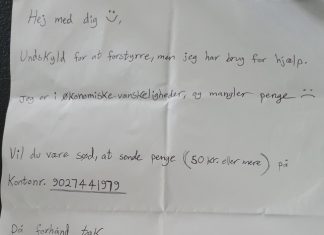 Hej med dig ☺,
Undskyld for at forstyrre, men jeg har brug for hjælp.
Jeg er i økonomiske vanskeligheder, og mangler penge ☹
Vil du være sød, at sende penge (50 kr. eller mere) på
Kontonr. 9027441979
På forhånd tak